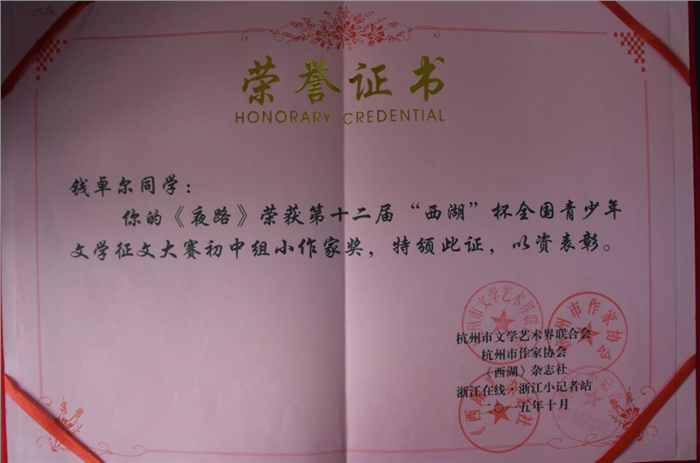 荣誉证书
HONORARY CREDENTIAL
钱卓尔同学：
你的《夜路》荣获第十二届“西湖”杯全国青少年
文学征文大赛初中组小作家奖，特颁此证，以资表彰。
杭州市文学艺术界联合会
杭州市作家协会
《西湖》杂志社
浙江在线·浙江小记者站
二〇一五年十月